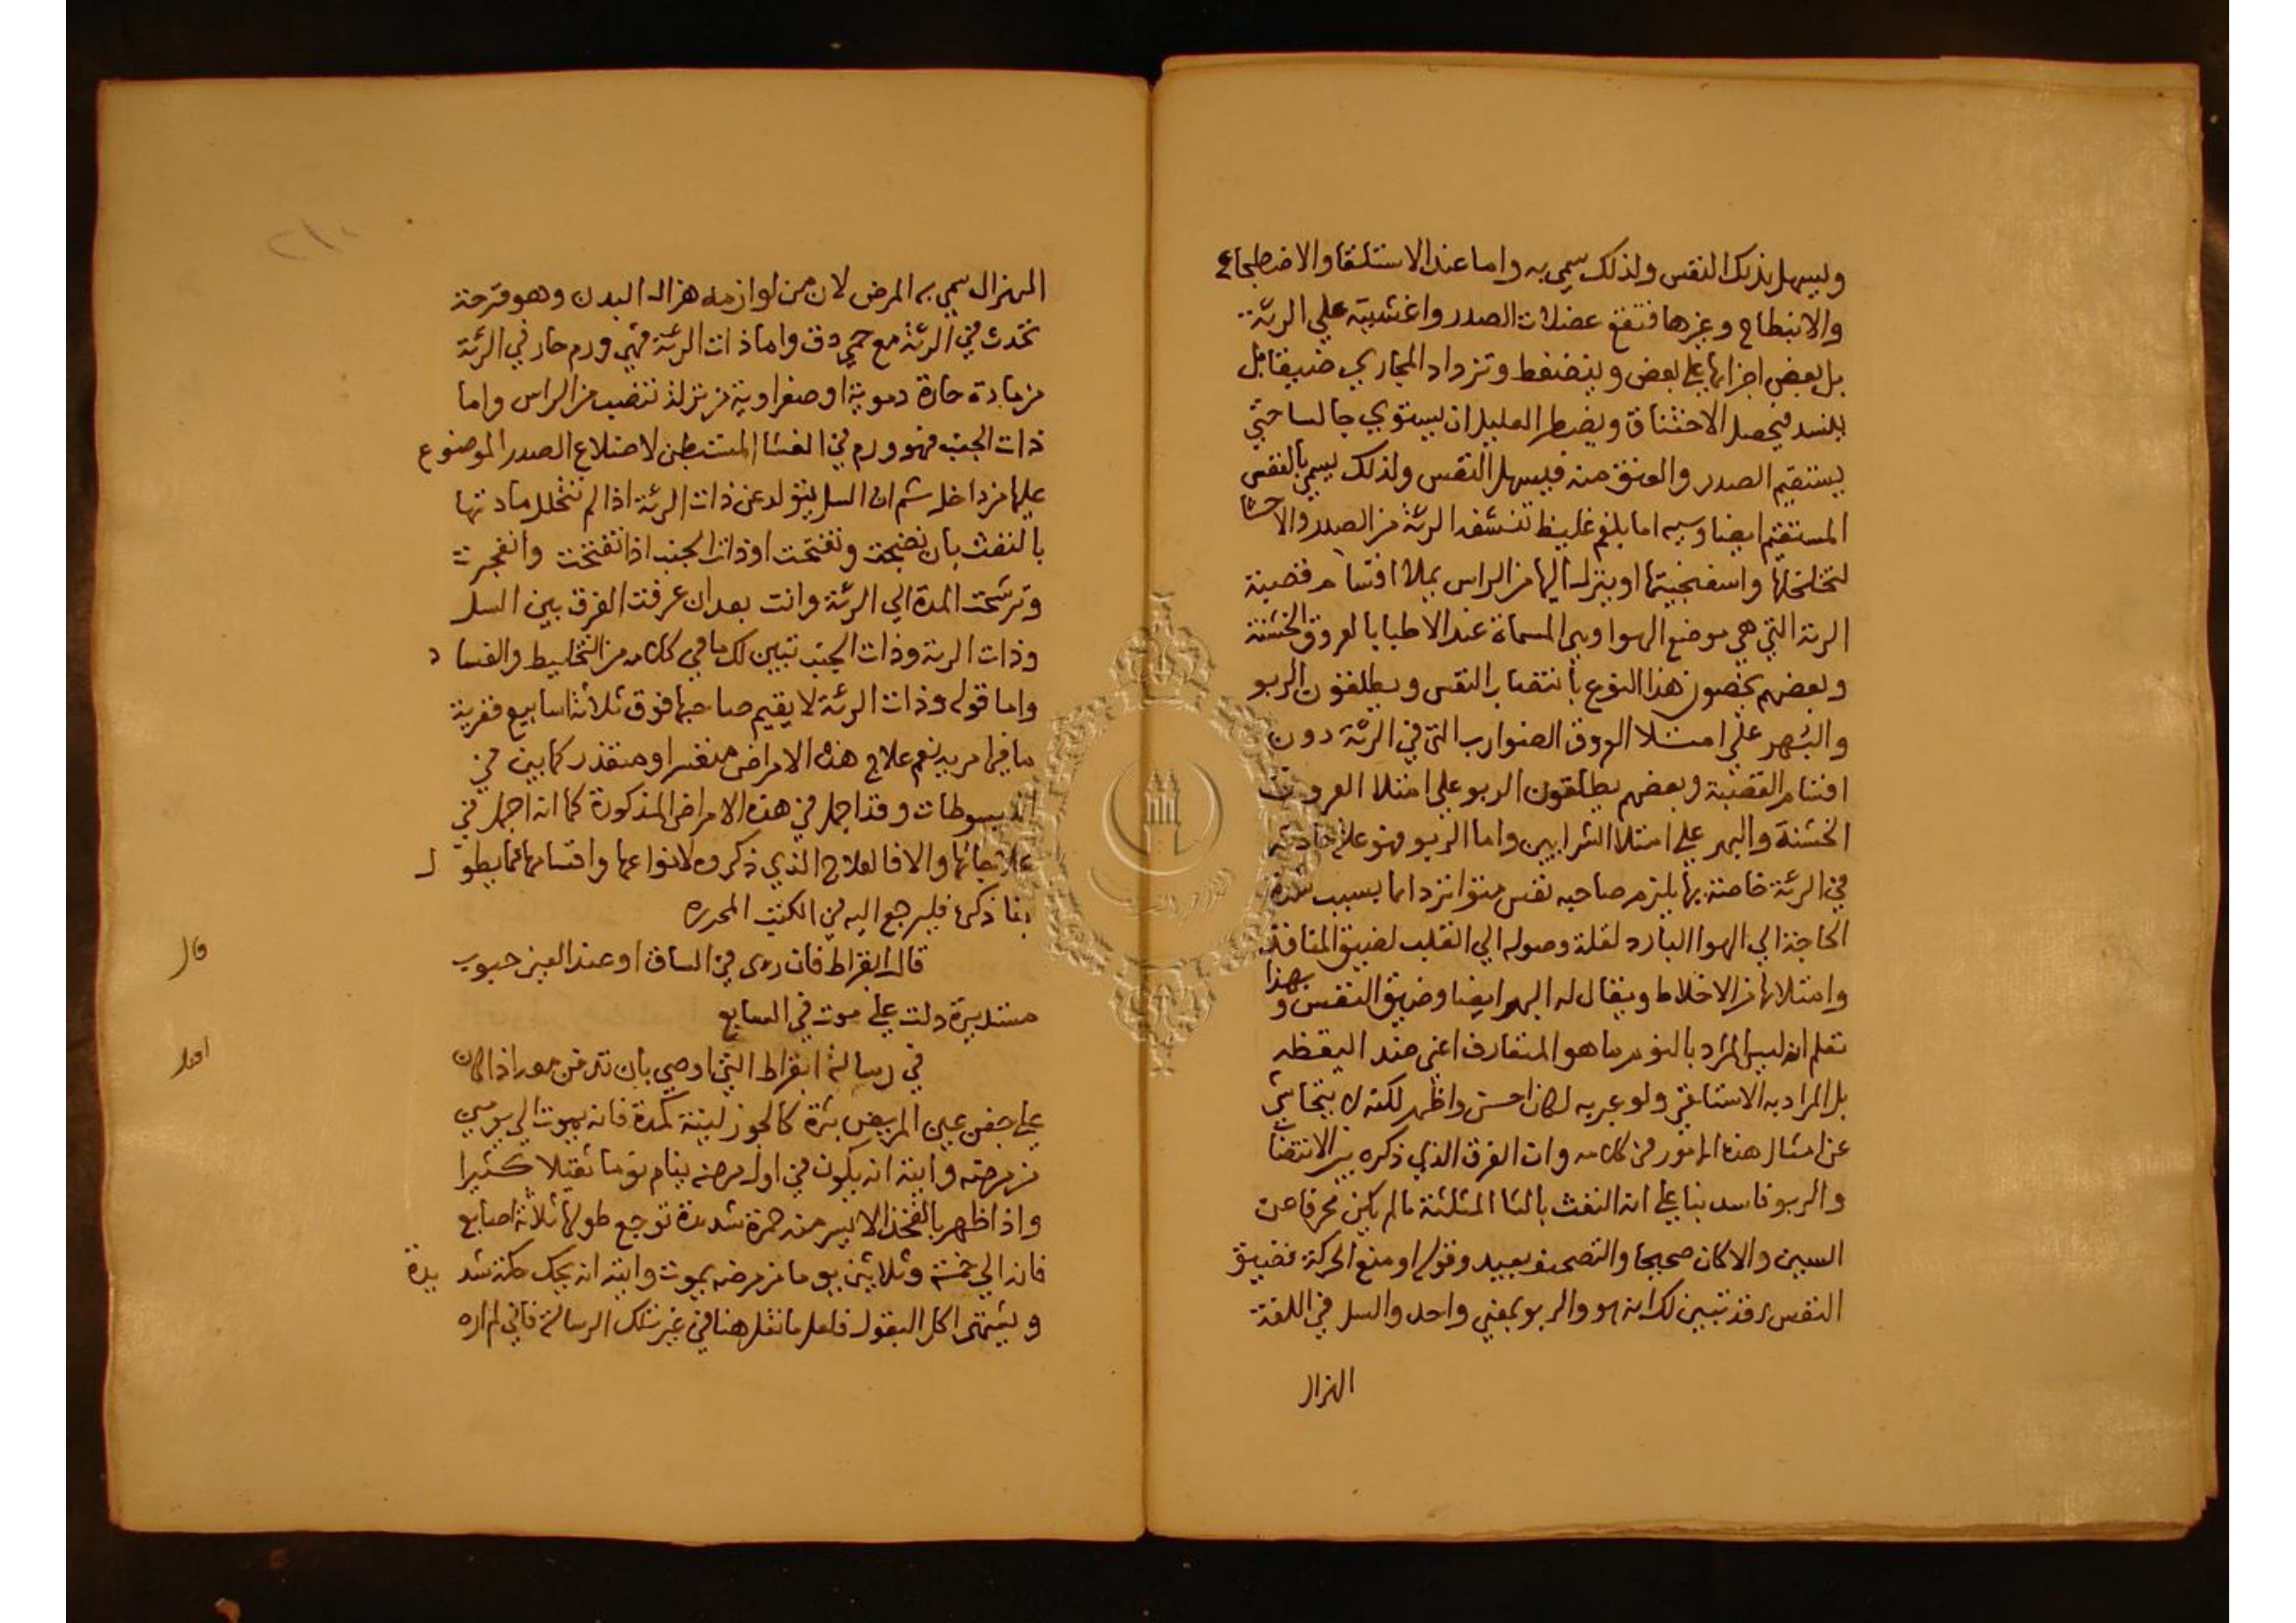 ويسهل بذلك النفس ولذلك سمي به واما عند الاستلقا والاضطجاع
والانبطاح وغيرها فتقع عضلات الصدر واغشيته علي الرئة
بل بعض اجزايها علي بعض وينضغط وتزداد المجاري ضيقا بل
ينسد فيحصل الاختناق ويضطر العليل ان يستوي جالسا حتي
يستقيم الصدر والعنق منه فيسهل النفس ولذلك يسمي بالنفس
المستقيم ايضا وسببه اما بلغم غليظ تنشفه الرئة من الصدر والاحشا
لتخلخلها واسفنجيتها او ينزل اليها من الراس يملا اقسام قصبة
الرية التي هي موضع الهوا وهي المسماة عند الاطبا بالعروق الخشنة
وبعضهم يخصون هذا النوع بانتصاب النفس ويطلقون الربو
والبهر علي امتلا العروق الضوارب التي في الرئة دون
اقسام القصبة وبعضهم يطلقون الربو علي امتلا العروق
الخشنة والبهر علي امتلا الشرايين واما الربو فهو علة حادثة
في الرئة خاصة بها يلزم صاحبه نفس متواتر دايما بسبب شدة
الحاجة الي الهوا البارد لقلة وصوله الي القلب لضيق المنافذ
وامتلائها من الاخلاط ويقال له البهر ايضا وضيق النفس وبهذا
تعلم انه ليس المراد بالنوم ما هو المتعارف اعني ضد اليقظه
بل المراد به الاستلقا ولو عبر به لكان احسن واظهر لكنه لا يتحاشي
عن امثال هذه الامور في كلامه وان الفرق الذي ذكره بين الانتصاب
والربو فاسد بنا علي ان النفث بالثا المثلثة ما لم يكن محرفا عن
السين والا كان صحيحا والتصحيف بعيد وقوله او منع الحركة فضيق
النفس وقد تبين لك انه هو والربو بمعني واحد والسل في اللغة
الهزال
الهزال سمي به المرض لان من لوازمه هزال البدن وهو قرحة
تحدث في الرئة مع حمي دق واما ذات الرئة فهي ورم حار في الرئة
من مادة حارة دموية او صفراوية من نزلة تنصب من الراس واما
ذات الجنب فهو ورم في الغشا المستبطن لاضلاع الصدر الموضوع
عليها من داخل ثم ان السل يتولد عن ذات الرئة اذا لم تتحلل مادتها
بالنفث بان نضجت وتفتحت او ذات الجنب اذا تفتحت وانفجرت
وترشحت المدة الي الرئة وانت بعد ان عرفت الفرق بين السل
وذات الرية وذات الجنب تبين لك ما في كلامه من التخليط والفساد
واما قوله وذات الرئة لا يقيم صاحبها فوق ثلاثة اسابيع ففرية
ما فيها مرية نعم علاج هذه الامراض متعسر او متعذر كما بين في
المبسوطات وقد اجمل في هذه الامراض المذكورة كما انه اجمل في
علاجاتها والا فالعلاج الذي ذكروه لانواعها واقسامها مما يطول
بنا ذكره فليرجع اليه في الكتب المحرره
قال ابقراط فان رءى في الساق او عند العين حبوب
مستديرة دلت علي موت في السابع
في رسالة ابقراط التي اوصي بان تدفن معه اذا كان
علي جفن عين المريض بثرة كالجوز لينة كمدة فانه يموت الي يومين
من مرضه وايته انه يكون في اول مرضه ينام نوما ثقيلا كثيرا
واذا ظهر بالفخذ الايسر منه حمرة شديدة توجع طولها ثلاثة اصابع
فانه الي خمسة وثلاثين يوما من مرضه يموت وايته انه يحك حكة شديدة
ويشتهي اكل البقول فلعل ما نقله هنا في غير تلك الرسالة فاني لم اره
قال
اقول